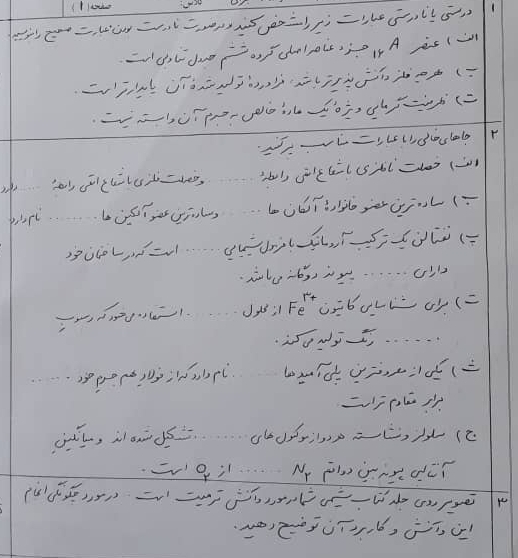 صفحه (1)
۱ درستی یا نادرستی عبارات زیر را مشخص کنید و در صورت نادرست بودن عبارت صحیح را بنویسید.
الف) عنصر 16A جزء عناصر اصلی گروه ششم جدول تناوبی است.
ب) هر چه فلز واکنش پذیرتر باشد، فرآوردهٔ تولید شدهٔ آن پایدارتر است.
ت) ظرفیت گرمایی ویژهٔ یک مادهٔ خالص به جرم آن وابسته نیست.
۲ جاهای خالی را با عبارات مناسب پر کنید.
الف) خصلت نافلزی با شعاع اتمی رابطهٔ ........ و خصلت فلزی با شعاع اتمی رابطهٔ ..... دارد
ب) ساده ترین عضو خانوادهٔ آلکان ها ........ و ساده ترین عضو آلکین ها ........ نام دارد
پ) نفتالن یک ترکیب آروماتیک با فرمول شیمیایی ...... است که در ساختمان خود
دارای ...... پیوند دوگانه می باشد.
ت) برای شناسایی کاتیون Fe3+ از محلول ....... استفاده می شود که رسوب
...... رنگ تولید می کند.
ث) یکی از معروفترین پلی آمیدها ....... نام دارد که از فولاد هم جرم خود ......
برابر مقاوم تر است.
ج) سلولز و نشاسته هر دو از مولکول های ........ تشکیل شده اند و میانگین
آنتالپی پیوند بین دو اتم N2 ...... از O2 است.
۳ تصویر روی جلد کتاب شیمی شما در مورد واکنش ترمیت است. در مورد چگونگی انجام
این واکنش و کاربرد آن توضیح دهید.